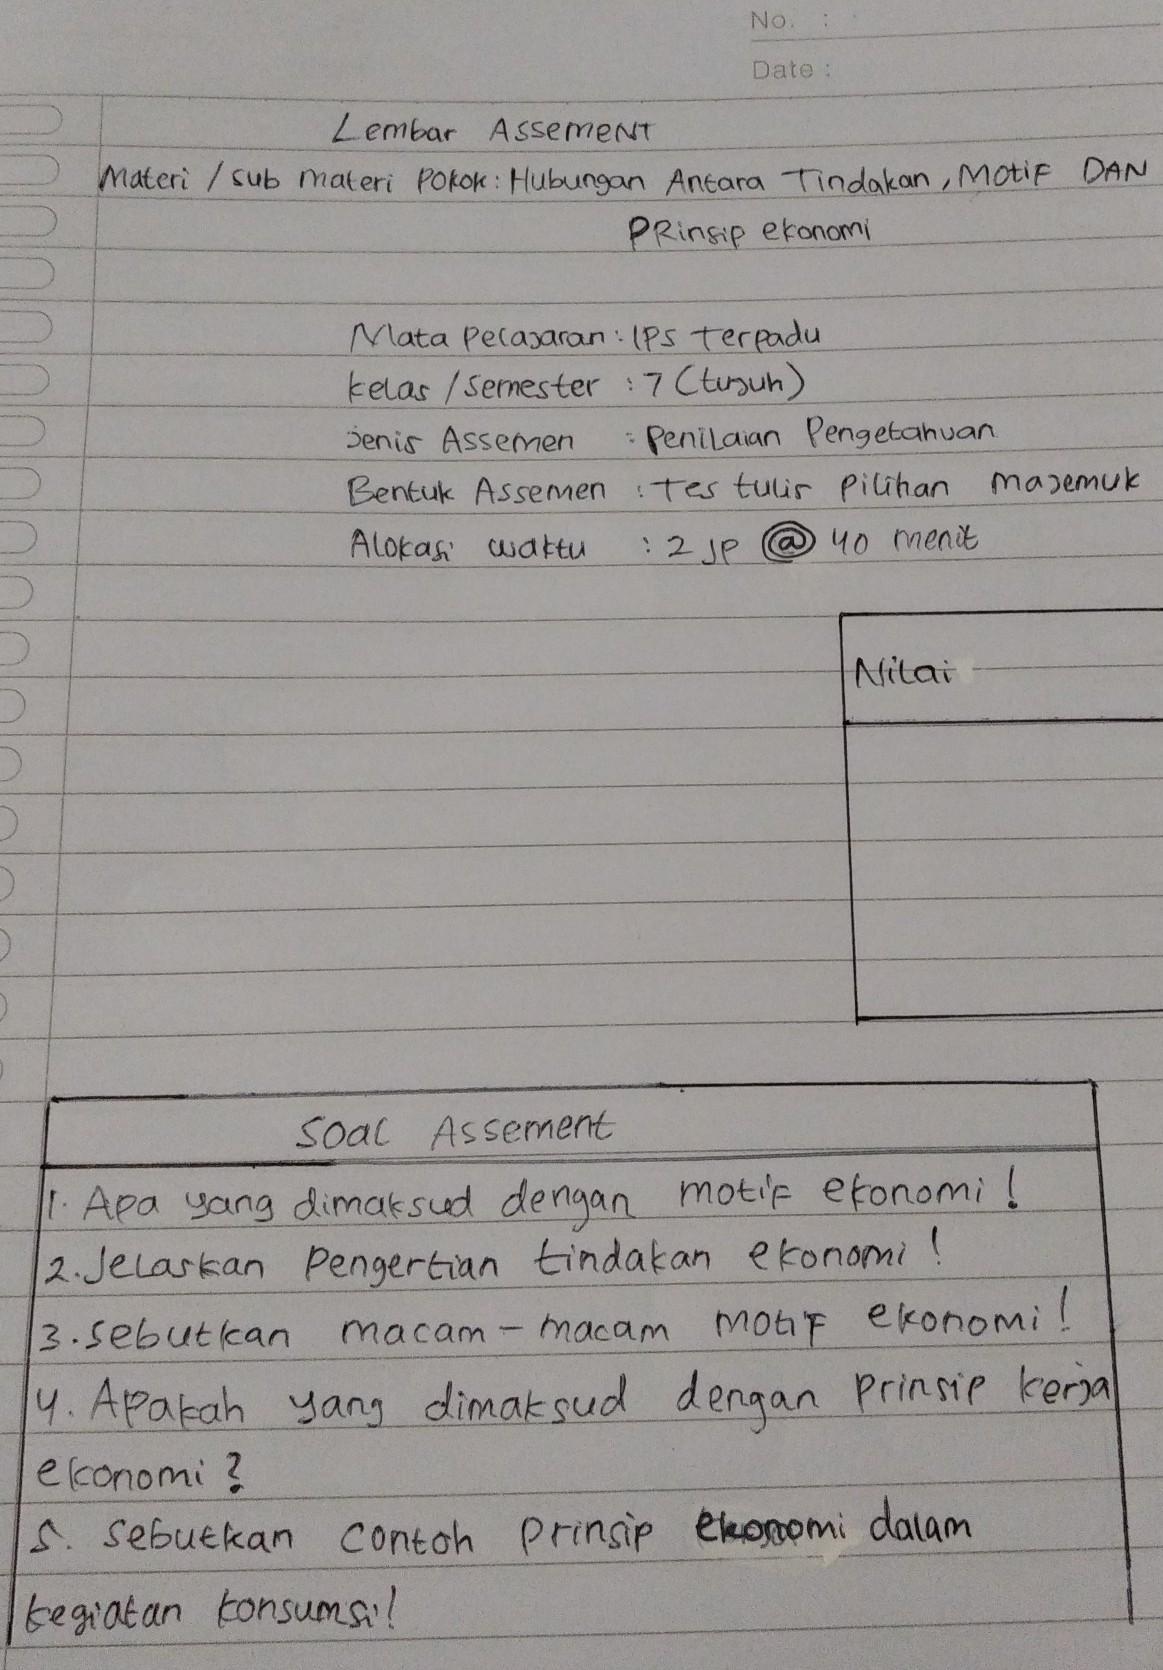 No. :
Date :
Lembar Assement
Materi / sub materi Pokok : Hubungan Antara Tindakan, Motif DAN
PRinsip ekonomi
Mata Pelajaran : IPS Terpadu
kelas / semester : 7 (tujuh)
Jenis Assemen : Penilaian Pengetahuan
Bentuk Assemen : Tes tulis Pilihan majemuk
Alokasi waktu : 2 JP @ 40 menit
Nilai
Soal Assement
1. Apa yang dimaksud dengan motif ekonomi !
2. Jelaskan Pengertian tindakan ekonomi !
3. sebutkan macam - macam motif ekonomi !
4. Apakah yang dimaksud dengan Prinsip kerja
ekonomi ?
5. sebutkan contoh Prinsip ekonomi dalam
kegiatan konsumsi !